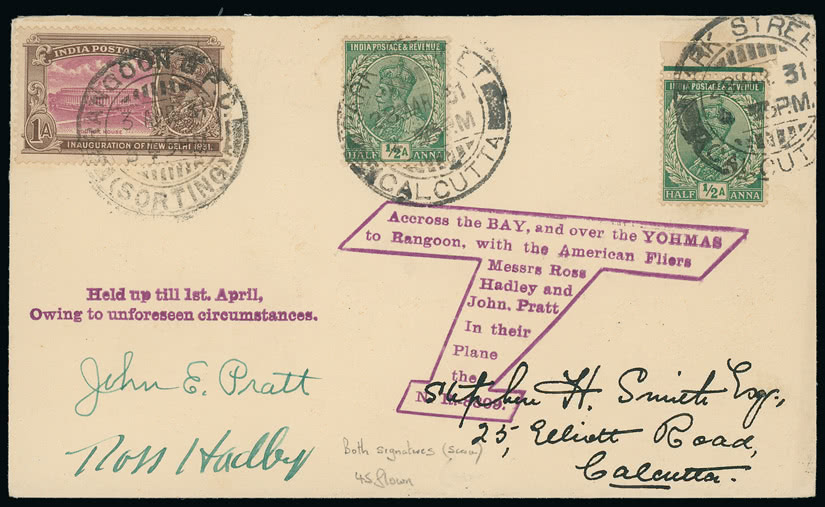 INDIA POSTAGE
1A
INAUGURATION OF NEW DELHI 1931.
RANGOON G.P.O.
(SORTING)
INDIA POSTAGE & REVENUE
HALF 1/2A ANNA
PARK STREET
MAR. 31
CALCUTTA
INDIA POSTAGE & REVENUE
HALF 1/2A ANNA
PARK STREE
MAR. 31
PM.
Accross the BAY, and over the YOHMAS
to Rangoon, with the American Fliers
Messrs Ross
Hadley and
John. Pratt
In their
Plane
the
Held up till 1st. April,
Owing to unforeseen circumstances.
John E. Pratt
Ross Hadley
Stephen H. Smith Esq.,
25, Elliott Road,
Calcutta.
Both signatures
45 flown